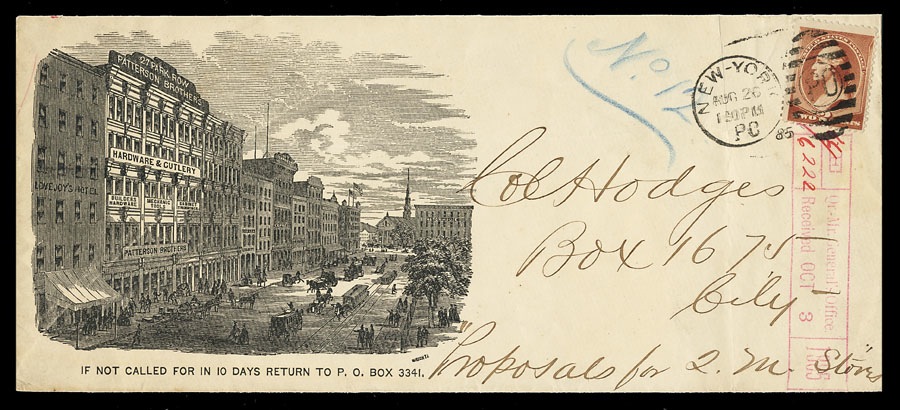 27 PARK ROW
PATTERSON BROTHERS
HARDWARE & CUTLERY
LOVEJOY'S HOTEL
BUILDERS HARDWARE
MECHANICS TOOLS
CABINET
PATTERSON BROTHERS
IF NOT CALLED FOR IN 10 DAYS RETURN TO P. O. BOX 3341.
No 12
NEW-YORK
AUG 26
PO
85
Col Hodges
Box 1675
City
"Proposals for Q. M. Stores
6222
Qr. Mr. General's Office
Received OCT 3 1885